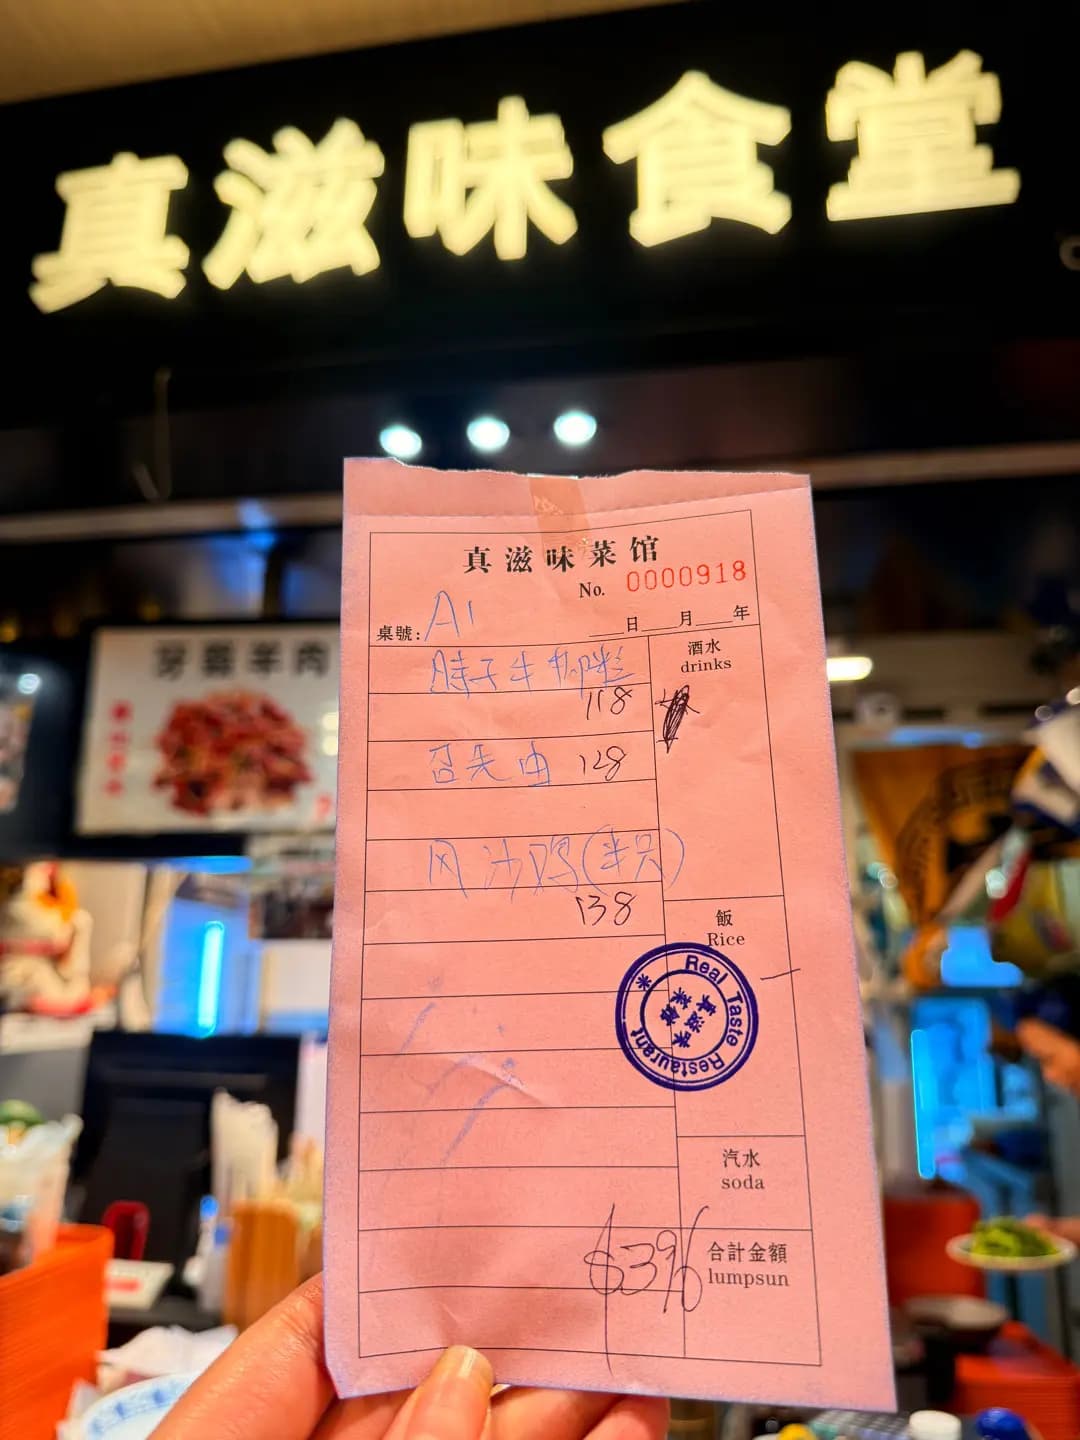 真滋味食堂
真滋味菜馆
No. 0000918
桌號: A1
日 月 年
酒水
drinks
118
128
风沙鸡(半只)
138
飯
Rice
Real Taste Restaurant
真滋味
菜館
汽水
soda
$396
合計金額
lumpsun
羊肉